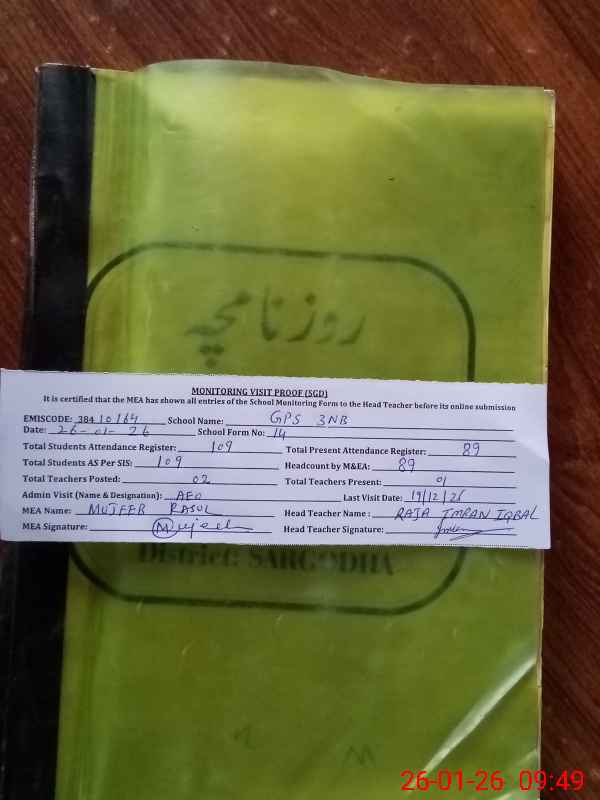 روزنامچہ
MONITORING VISIT PROOF (SGD)
It is certified that the MEA has shown all entries of the School Monitoring Form to the Head Teacher before its online submission
EMISCODE: 38410164 School Name: GPS 3NB
Date: 26-01-26 School Form No: 14
Total Students Attendance Register: 109 Total Present Attendance Register: 89
Total Students AS Per SIS: 109 Headcount by M&EA: 89
Total Teachers Posted: 02 Total Teachers Present: 01
Admin Visit (Name & Designation): AEO Last Visit Date: 19/12/25
MEA Name: MUJEEB RASUL Head Teacher Name: RAJA IMRAN IQBAL
MEA Signature: Mujeeb Head Teacher Signature:
District: SARGODHA
26-01-26 09:49